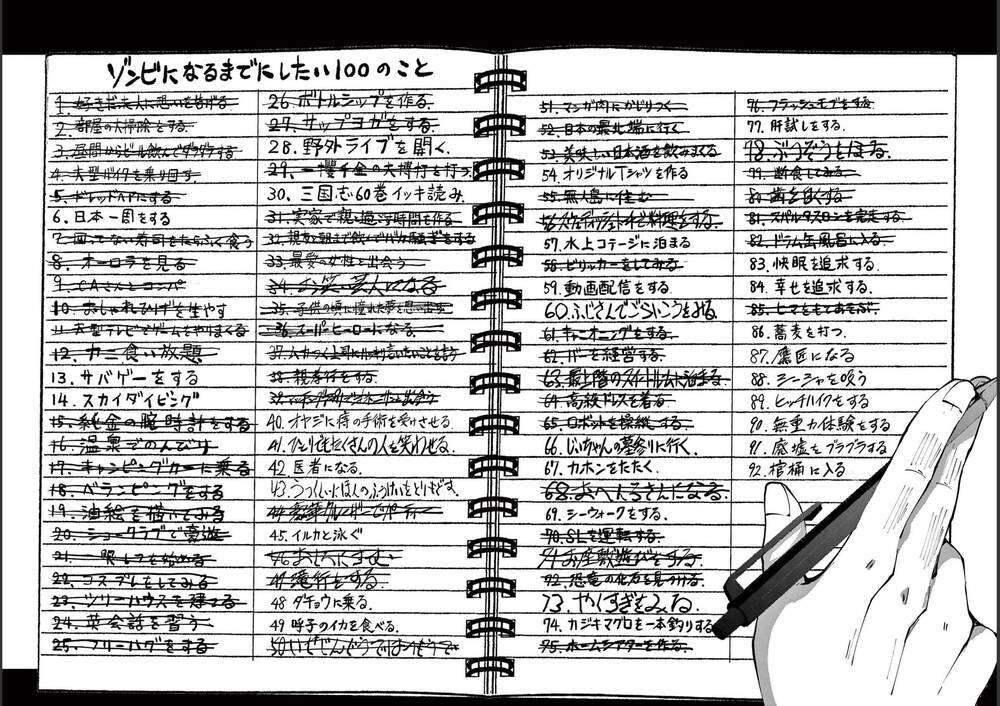 ゾンビになるまでにしたい100のこと
1. 好きだった人に思いを告げる
2. 部屋の大掃除をする。
3. 昼間からビール飲んでダラダラする
4. 大型バイクを乗り回す。
5. ドレッドヘアにする
6. 日本一周をする
7. 回ってない寿司をたらふく食う
8. オーロラを見る
9. CAさんとコンパ
10. おしゃれひげを生やす
11. 大型テレビでゲームをやりまくる
12. カニ食い放題
13. サバゲーをする
14. スカイダイビング
15. 純金の腕時計をする
16. 温泉でのんびり
17. キャンピングカーに乗る
18. ベランピングをする
19. 油絵を描いてみる
20. ショークラブで豪遊
21. 眠レコを始める
22. コスプレをしてみる
23. ツリーハウスを建てる
24. 英会話を習う
25. フリーハグをする
26. ボトルシップを作る.
27. サップヨガをする.
28. 野外ライブを開く.
29. 一攫千金の大博打を打つ
30. 三国志60巻イッキ読み
31. 実家で親と過ごす時間を作る
32. 親友と朝まで飲んでバカ騒ぎをする
33. 最愛の女性と出会う
34. お笑い芸人になる
35. 子供の頃に憧れた夢を思い出す
36. スーパーヒーローになる.
37. ムカつく上司にハッキリ言いたいことを言う
38. 親孝行をする.
39. で と出会う
40. オヤジに痔の手術を受けさせる.
41. ひとりでもたくさんの人を笑わせる.
42. 医者になる.
43. うつくしいにほんのふうけいをとりもどす.
44. 豪華クルーザーでパーティー
45. イルカと泳ぐ
46. おしろにすむ
47. 滝行をする.
48 ダチョウに乗る.
49 呼子のイカを食べる.
50.
51. マンガ肉にかじりつく
52. 日本の最北端に行く
53. 美味しい日本酒を飲みまくる
54 オリジナルTシャツを作る
55. 無人島に住む
56 スカンディナヴィア料理をする.
57. 水上コテージに泊まる
58. ビリヤードをしてみる
59. 動画配信をする.
60. ふじさんでごらいこうをみる.
61. キャニオニングをする.
62. バーを経営する.
63. 最上階のスイートルームに泊まる
64. 高級ドレスを着る
65. ロボットを操縦する.
66. じいちゃんの墓参りに行く.
67. カホンをたたく.
68. おへんろさんになる.
69. シーウォークをする.
70. SLを運転する.
71. お座敷遊びをする.
72. 恐竜の化石を見つける.
73. やくすぎをみる.
74. カジキマグロを一本釣りする
75. ホームシアターを作る.
76. フラッシュモブをする
77. 肝試しをする.
78. ぶつぞうをほる.
79. 断食してみる.
80. 歯を白くする
81. スパルタスロンを完走する
82. ドラム缶風呂に入る.
83. 快眠を追求する.
84. 幸せを追求する.
85. ヒマをもてあそぶ.
86. 蕎麦を打つ.
87. 鷹匠になる
88. シーシャを吸う
89. ヒッチハイクをする
90. 無重力体験をする
91. 廃墟をブラブラする
92. 棺桶に入る